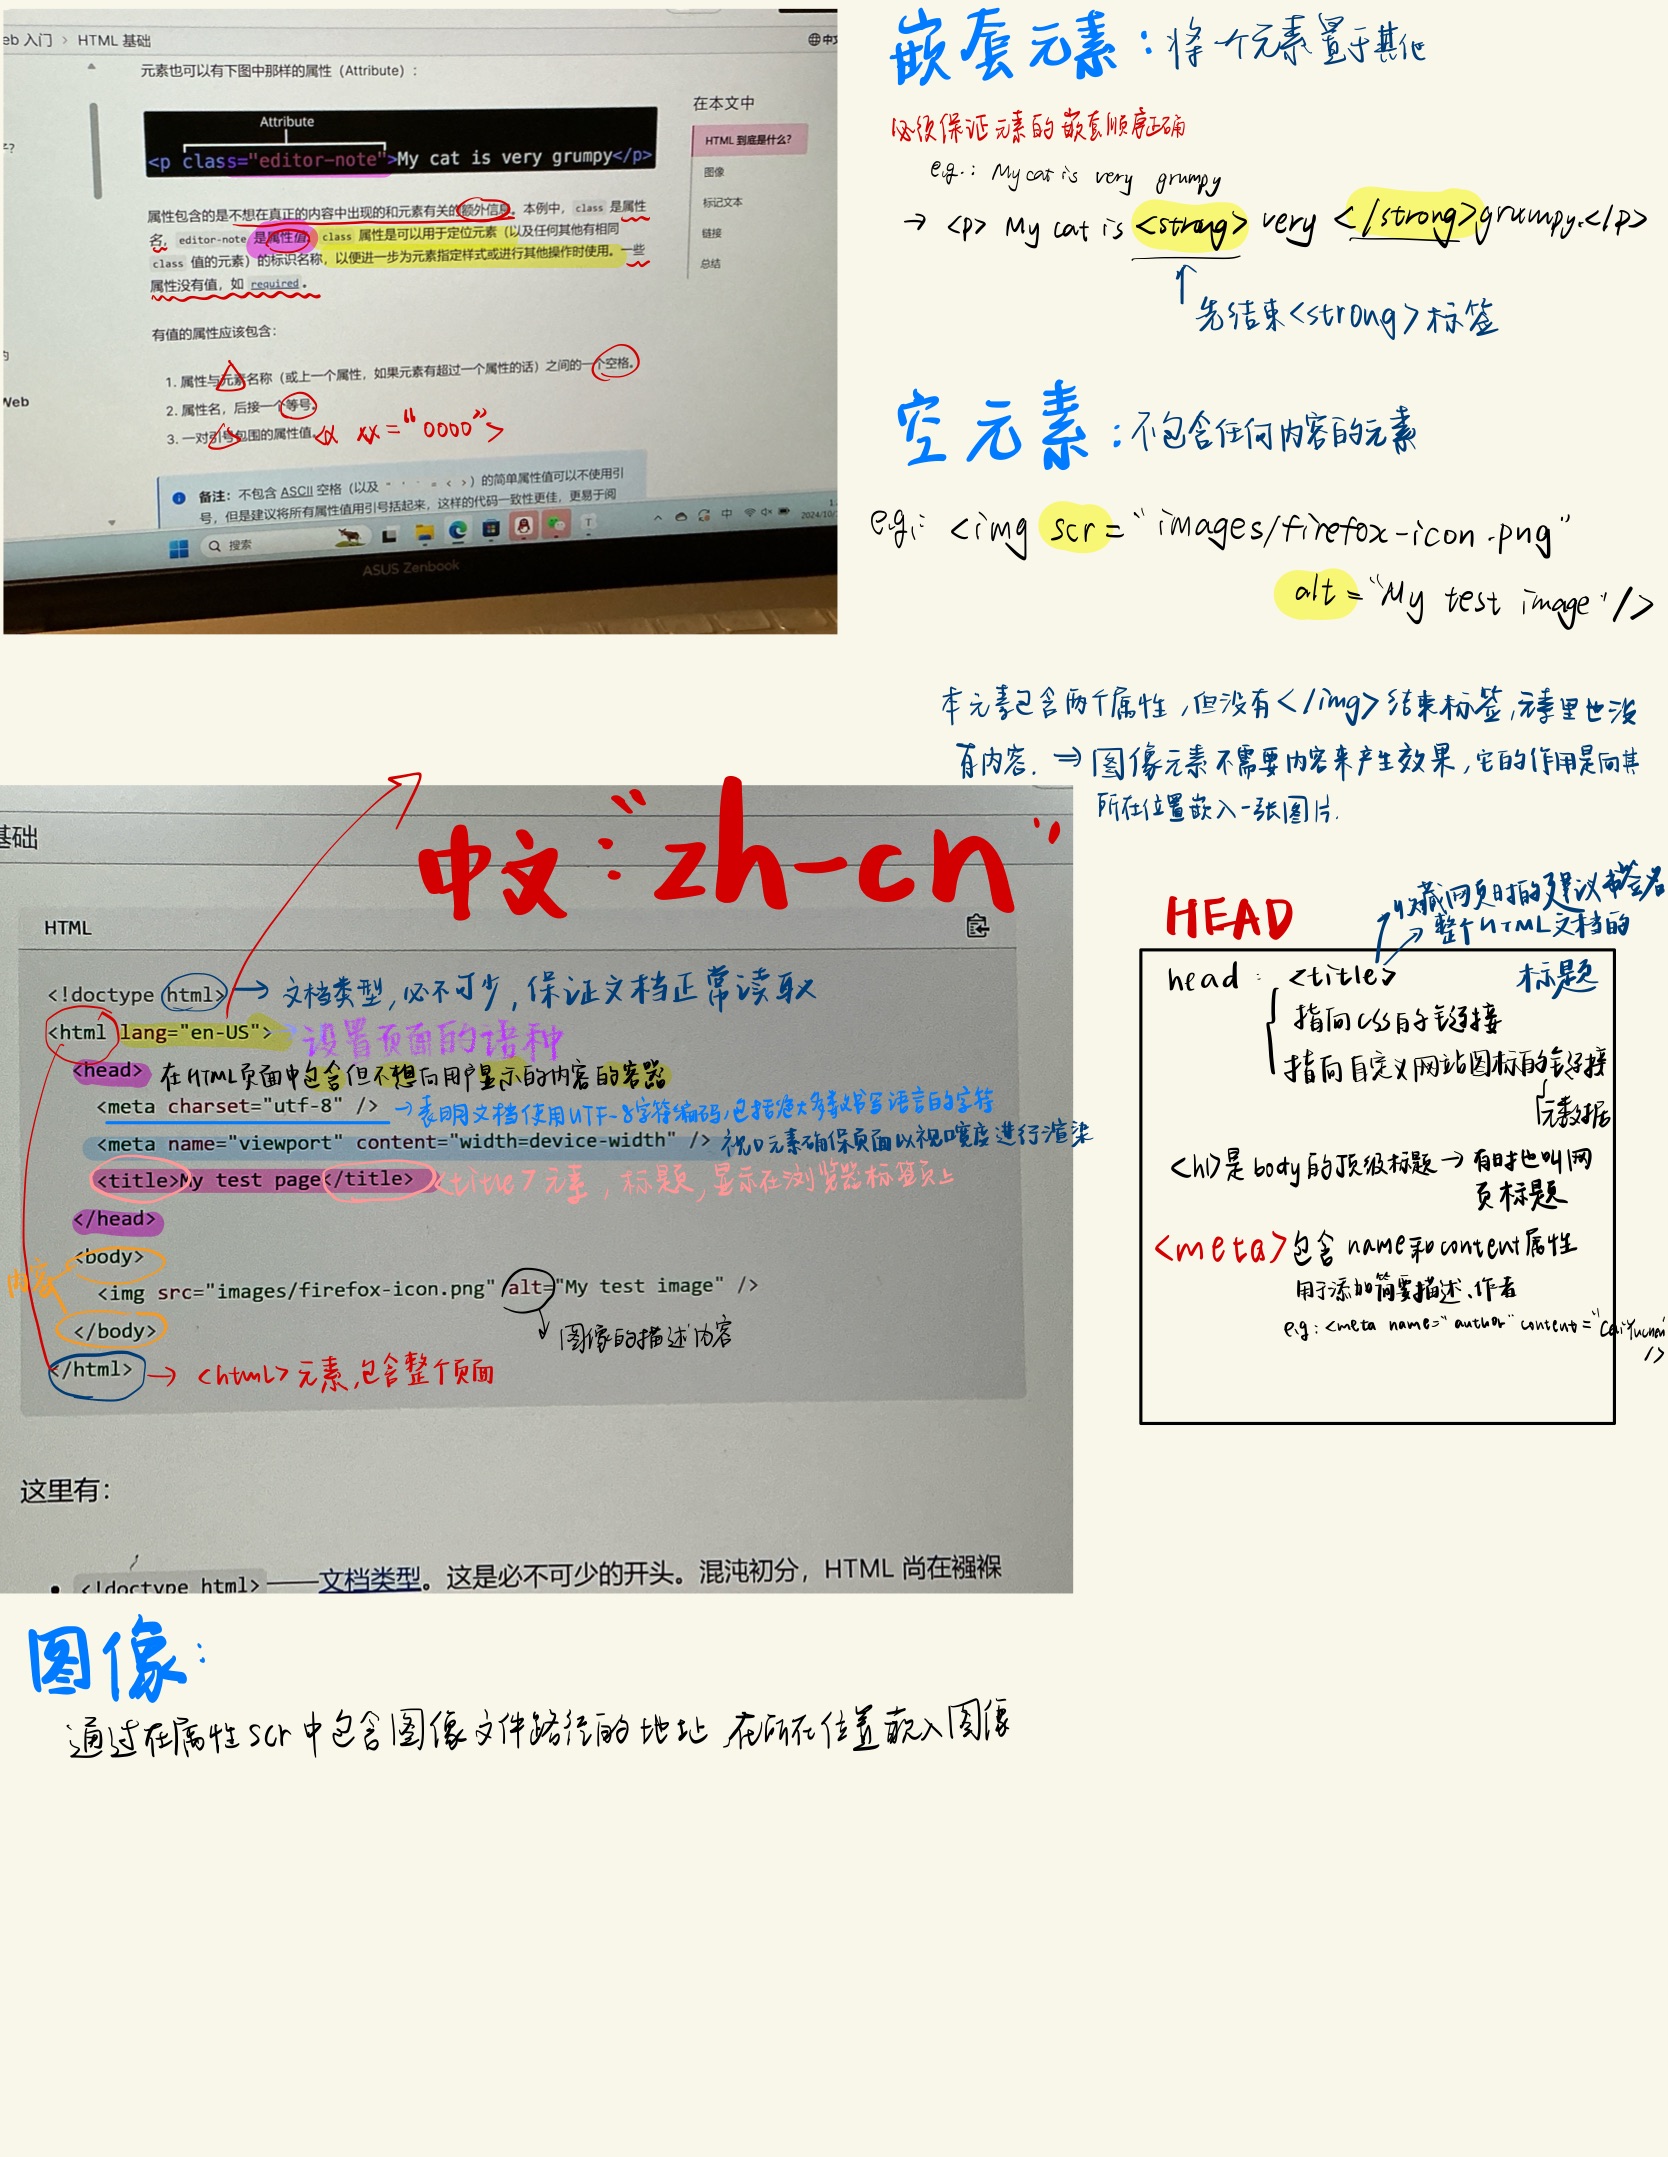 eb 入门 > HTML 基础
元素也可以有下图中那样的属性（Attribute）：
Attribute
<p class="editor-note">My cat is very grumpy</p>
属性包含的是不想在真正的内容中出现的和元素有关的额外信息。本例中，class 是属性
名，editor-note 是属性值。class 属性是可以用于定位元素（以及任何其他有相同
class 值的元素）的标识名称，以便进一步为元素指定样式或进行其他操作时使用。一些
属性没有值，如 required。
有值的属性应该包含：
1. 属性与元素名称（或上一个属性，如果元素有超过一个属性的话）之间的一个空格。
2. 属性名，后接一个等号。
3. 一对引号包围的属性值。
xx="0000">
备注：不包含 ASCII 空格（以及 " ' ` = < >）的简单属性值可以不使用引
号，但是建议将所有属性值用引号括起来，这样的代码一致性更佳，更易于阅
在本文中
HTML 到底是什么？
图像
标记文本
链接
总结
Web
搜索
中
2024/10/
ASUS Zenbook
嵌套元素：将一个元素置于其他
必须保证元素的嵌套顺序正确
e.g.: My cat is very grumpy
→ <p> My cat is <strong> very </strong>grumpy.</p>
先结束<strong>标签
空元素：不包含任何内容的元素
e.g.: <img scr="images/firefox-icon.png"
alt="My test image"/>
本元素包含两个属性,但没有</img>结束标签,元素里也没
有内容. ⇒ 图像元素不需要内容来产生效果,它的作用是向其
所在位置嵌入一张图片.
基础
中文:"zh-cn"
HTML
<!doctype html> → 文档类型,必不可少,保证文档正常读取
<html lang="en-US"> 设置页面的语种
<head> 在HTML页面中包含但不想向用户显示的内容的容器
<meta charset="utf-8" /> → 表明文档使用UTF-8字符编码,包括绝大多数书写语言的字符
<meta name="viewport" content="width=device-width" /> 视口元素确保页面以视口宽度进行渲染
<title>My test page</title> <title>元素,标题,显示在浏览器标签页上
</head>
<body>
内容
<img src="images/firefox-icon.png" alt="My test image" />
</body> 图像的描述内容
</html> → <html>元素,包含整个页面
这里有：
<!doctype html>——文档类型。这是必不可少的开头。混沌初分，HTML 尚在襁褓
HEAD
收藏网页时的建议书签名
整个HTML文档的
标题
head: <title>
指向CSS的链接
指向自定义网站图标的链接
元数据
<h1>是body的顶级标题→有时也叫网
页标题
<meta>包含name和content属性
用于添加简要描述、作者
e.g: <meta name="author" content="
/>
图像:
通过在属性scr中包含图像文件路径的地址,在所在位置嵌入图像